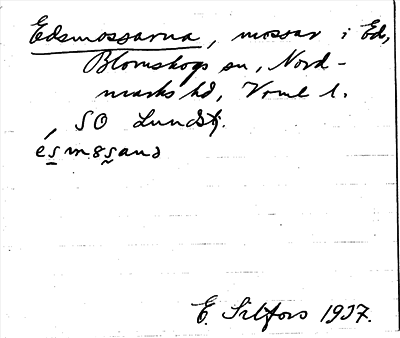 Edsmossarna, mossar i Ed,
Blomskogs sn, Nord-
marks hd, Vrml l.
SO Lundstj.
E. Silfors 1937.